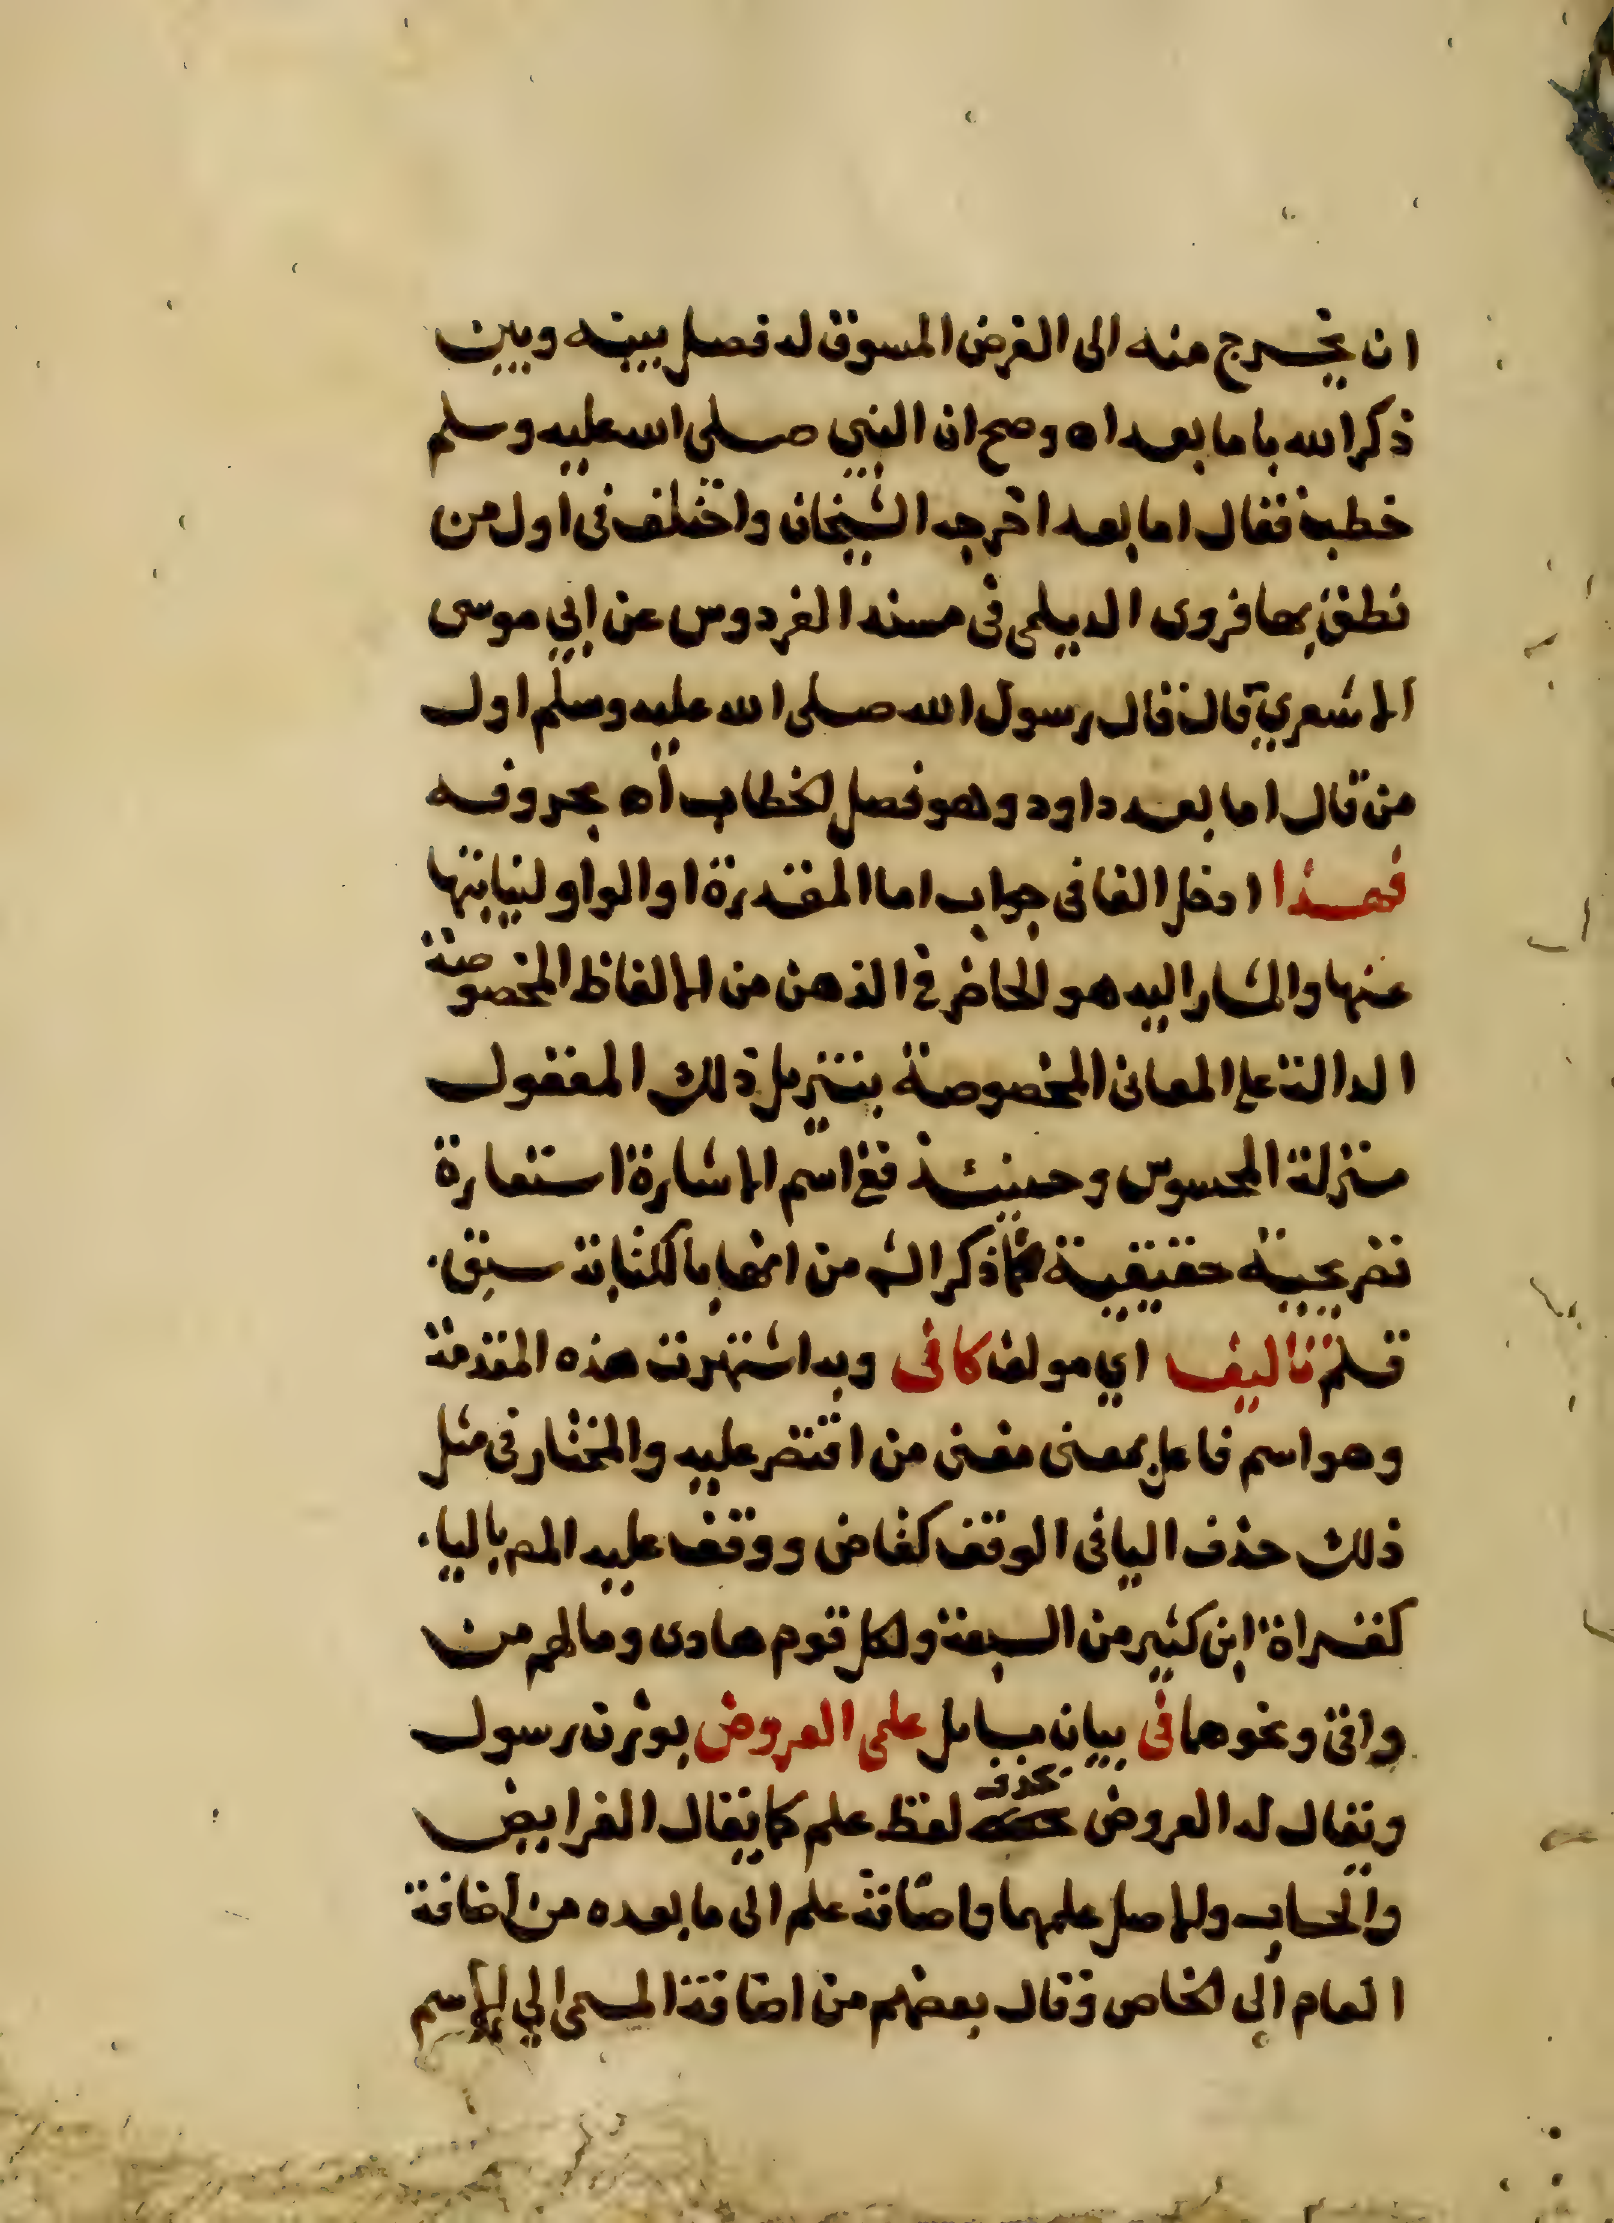 ان يخرج منه الى الغرض المسوق له فصل بينه وبين
ذكر الله باما بعد اه وصح ان النبي صلى الله عليه وسلم
خطب فقال اما بعد اخرجه الشيخان واختلف فى اول من
نطق بها فروى الديلمى فى مسند الفردوس عن ابي موسى
الاشعري قال قال رسول الله صلى الله عليه وسلم اول
من قال اما بعد داود وهو فصل الخطاب اه بحروفه
فهذا ادخل الفا فى جواب اما المقدرة او الواو لنيابتها
عنها والمشار اليه هو الحاضر فى الذهن من الالفاظ المخصوصة
الدالة على المعانى المخصوصة بتنزيل ذلك المعقول
منزلة المحسوس وحينئذ ففى اسم الاشارة استعارة
تصريحية حقيقية كما ذكر الشـ من انها بالكناية سبق
قلم تاليف اي مولف كافى وبه اشتهرت هذه المقدمة
وهو اسم فاعل بمعنى مغنى من اقتصر عليه والمختار فى مثل
ذلك حذف اليا فى الوقف كقاض ووقف عليه المص باليا
كقراة ابن كثير من السبعة ولكل قوم هادى ومالهم من
واقى ونحوها فى بيان مسايل علمى العروض بوزن رسول
ويقال له العروض بحذف لفظ علم كما يقال الفرايض
والحساب والاصل علمهما واضافة علم الى ما بعده من اضافة
العام الى الخاص وقال بعضهم من اضافة المسمى الي الاسم